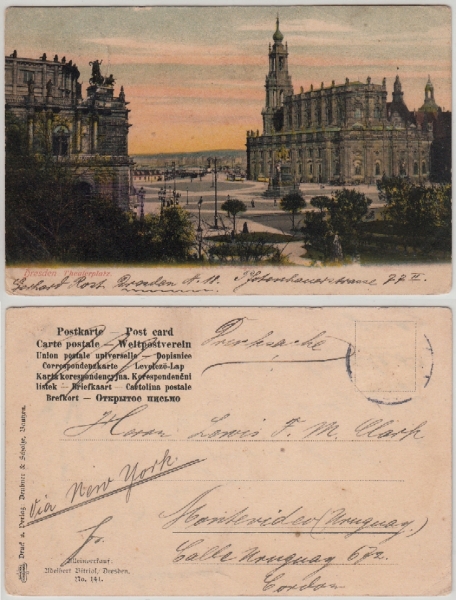 Dresden Theaterplatz.
Gerhard Rost. Dresden A. 11.
Postkarte — Post card
Carte postale — Weltpostverein
Union postale universelle — Dopisnice
Correspondenzkarte — Levelező-Lap
Karta korespondencyjna. Korespondenční
lístek — Briefkaart — Cartolina postale
Brefkort — Открытое письмо
Drucksache
Herrn Louis F. M. Clark
via New York.
Montevideo (Uruguay)
Calle Uruguay 672
Cordon
Druck u. Verlag Deubner & Scholze, Bautzen.
Alleinverkauf:
Adalbert Bittrief, Dresden.
No. 141.